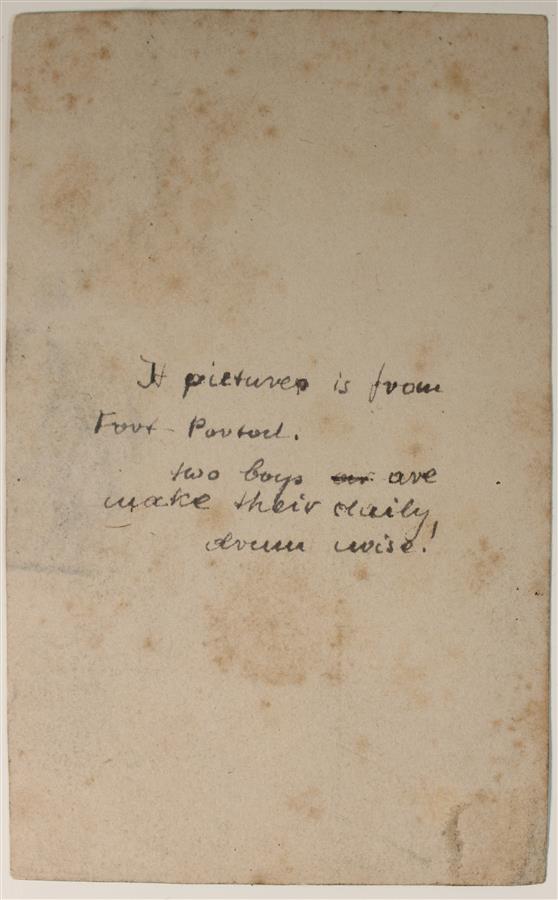 It pictures is from
Fort-Portal.
two boys are
make their daily
drum noise!